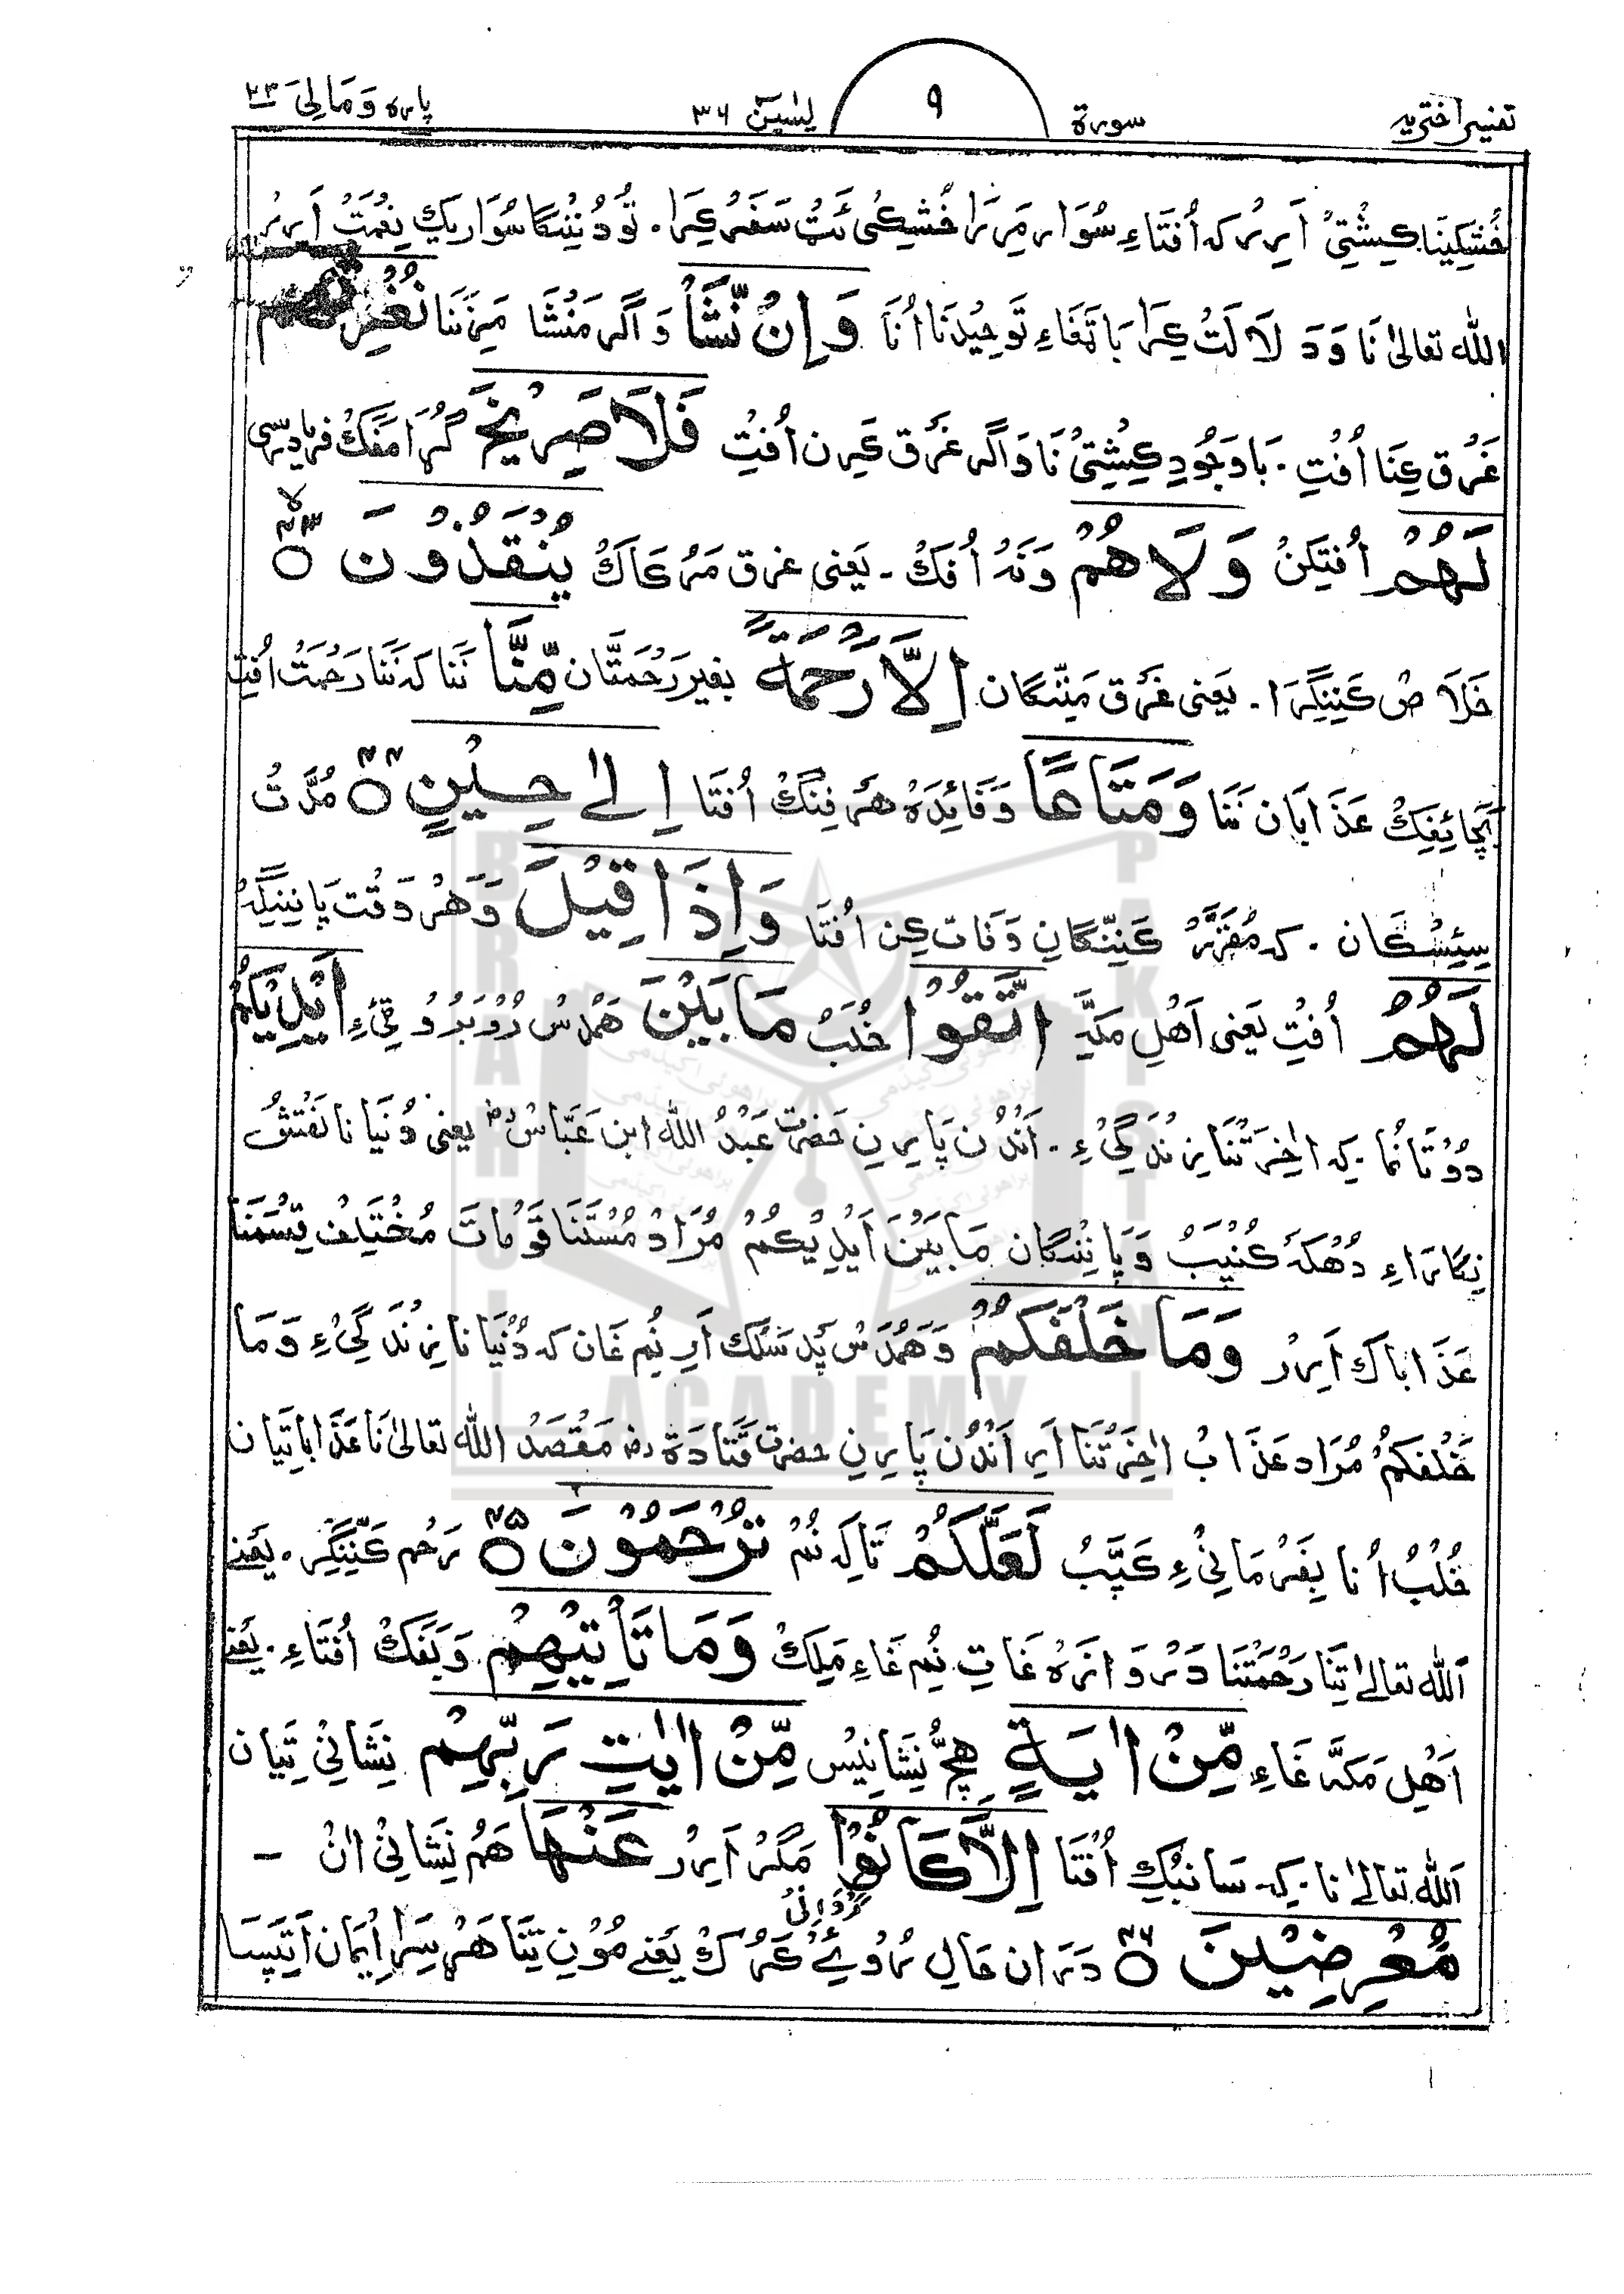 تفسیر اختریہ سورة ٩ یٰسٓین ٣٦ پارہ وَمَالِیَ ٢٣
خُشکِینَا کِشتِیْ اَرِیر کہ اُفتَاءِ سُوَار مَرِیرَا خُشکِی ئَٹُ سَفَر کِرَا۔ تَو دُنُنگَا سُوَارِیک نِعْمَتْ اَرِیر
اللّٰہ تعالیٰ نَا وَ دَلَالَتْ کِرَا بَا تَفَاءِ تَوحِیْدنَا اُنَا وَاِنْ نَّشَاْ وَ اَگر مَنْشَا مَرِینَنَا نُغْرِقْهُمْ
غَرْق کِنَا اُفتِ۔ بَا وَجُودِ کِشتِیْ نَا وَ اَگر غَرْق کَرِن اُفتِ فَلَا صَرِیْخَ گُڑا مَفَکْ فریادرسی
لَهُمْ اُفتِکِنْ وَلَا هُمْ وَنَہ اُفَکْ۔ یَعنی غرق مَرُکَاکْ یُنْقَذُوْنَ ٥ ٤٣
خَلَاص کَنِنِگِرَا۔ یَعنی غَرْق مَنِّنگان اِلَّا رَحْمَةً بغیر رَحْمَتَّان مِّنَّا نَنَا کہ نَنَا رَحْمَتْ اُفتِ
بَچَائِفِکْ عَذَابَان نَنَا وَمَتَاعًا وَ فَائِدَہ هَرفِنگْ اُفتَا اِلٰی حِیْنٍ ٥ ٤٤ مُدَّتْ
سِیْسْکَان۔ کہ مُقَرَّرْ کَنِنَّگَان وَفَات کِن اُفتَا وَاِذَا قِیْلَ وَ هَرْ وَقت پَانِنگِہ
لَهُمْ اُفتِ یَعنی اَهْلِ مَکَّہِ اتَّقُوْا خُلبُ مَا بَیْنَ هَمْدُس رُوْبَرُوْ قَیءِ اَیْدِیْکُمْ
دُوْتَانُمَا۔ کہ اٰخِرَتْنَا زِنْدَگِیْءِ۔ اَنْدُن پَارِینِ حضرت عَبْدُ اللّٰہ ابن عَبَّاس رض یعنی دُنْیَا نَا نَقْشْ
نِگَارَاءِ دُهْکَہ کُنْبَبُ وَ پَانِنْنگَان مَا بَیْنَ اَیْدِیْکُمْ مُرَادْ مُسْتَنَا قَوْمَاتَ مُخْتَلِفْ قِسْمَنَا
عَذَابَاک اَرِیر وَمَا خَلْفَکُمْ وَ هَمْدُس پَد سَلَّک اَرِ نُم غَان کہ دُنْیَا نَا زِنْدَگِیْءِ وَمَا
خَلْفَکُمْ مُرَاد عَذَابْ اٰخِرَتْنَا اَرِ اَنْدُن پَارِینِ حضرت قَتَادَة رض مَقْصَدْ اللّٰہ تعالیٰ نَا عَذَابَاتِیَان
خُلْبُ اُنَا بِفَرْمَانِیْءِ کَپَّبُ لَعَلَّکُمْ تَاکہ نُمْ تُرْحَمُوْنَ ٥ ٤٥ رَحْم کَنِنِّگِر۔ یَعنے
اَللّٰہ تعالیٰ تِنَا رَحْمَتْنَا دَرْوَازَہ غَاتِ نُم غَاءِ مَلِکْ وَمَا تَاْتِیْهِمْ وَ بَفَکْ اُفتَاءِ۔ یَعنے
اَهْلِ مَکَّہ غَاءِ مِّنْ اٰیَةٍ هِچُّ نِشَانِیْس مِّنْ اٰیٰتِ رَبِّهِمْ نِشَانِیْ تِیَان
اَللّٰہ تعالیٰ نَا۔ کہ سَانبُکِ اُفتَا اِلَّا کَانُوْا مَگَرْ اَرِیر عَنْهَا هَمْ نِشَانِیْ اٰنْ –
مُعْرِضِیْنَ ٥ ٤٦ دَرَان حَالِ رُوئے گَردَانِیْ کَرُکْ یَعنے مُوْنِ تِنَا هَرْسَرَا اِیْمَان اَتَپَسَا
BRAHUI ACADEMY PAKISTAN
براهوئی اکیڈمی